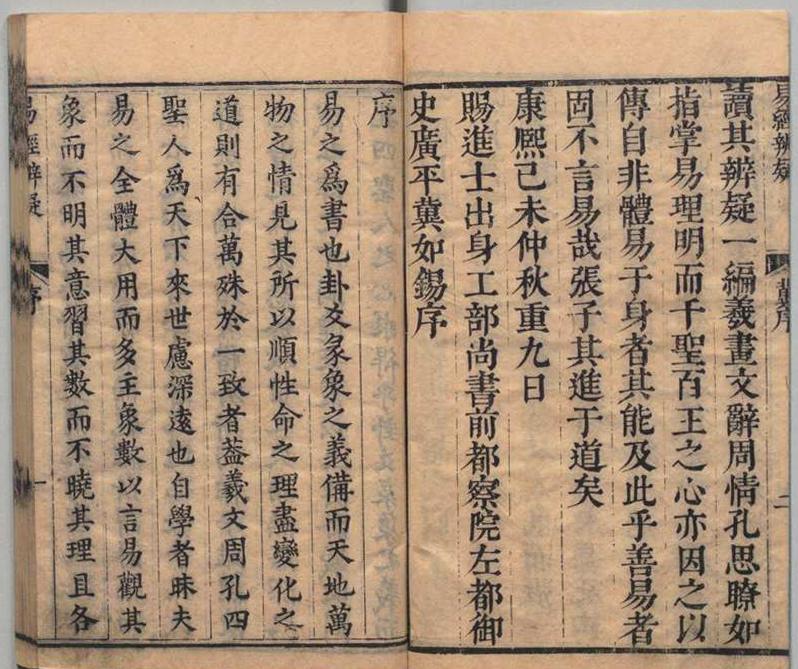 易經辨疑
冀序
二
讀其辨疑一編羲畫文辭周情孔思瞭如
指掌易理明而千聖百王之心亦因之以
傳自非體易于身者其能及此乎善易者
固不言易哉張子其進于道矣
康熙己未仲秋重九日
賜進士出身工部尚書前都察院左都御
史廣平冀如錫序
序
易之爲書也卦爻彖象之義備而天地萬
物之情見其所以順性命之理盡變化之
道則有合萬殊於一致者葢羲文周孔四
聖人爲天下來世慮深遠也自學者昧夫
易之全體大用而多主象數以言易觀其
象而不明其意習其數而不曉其理且各
易經辨疑
序
一